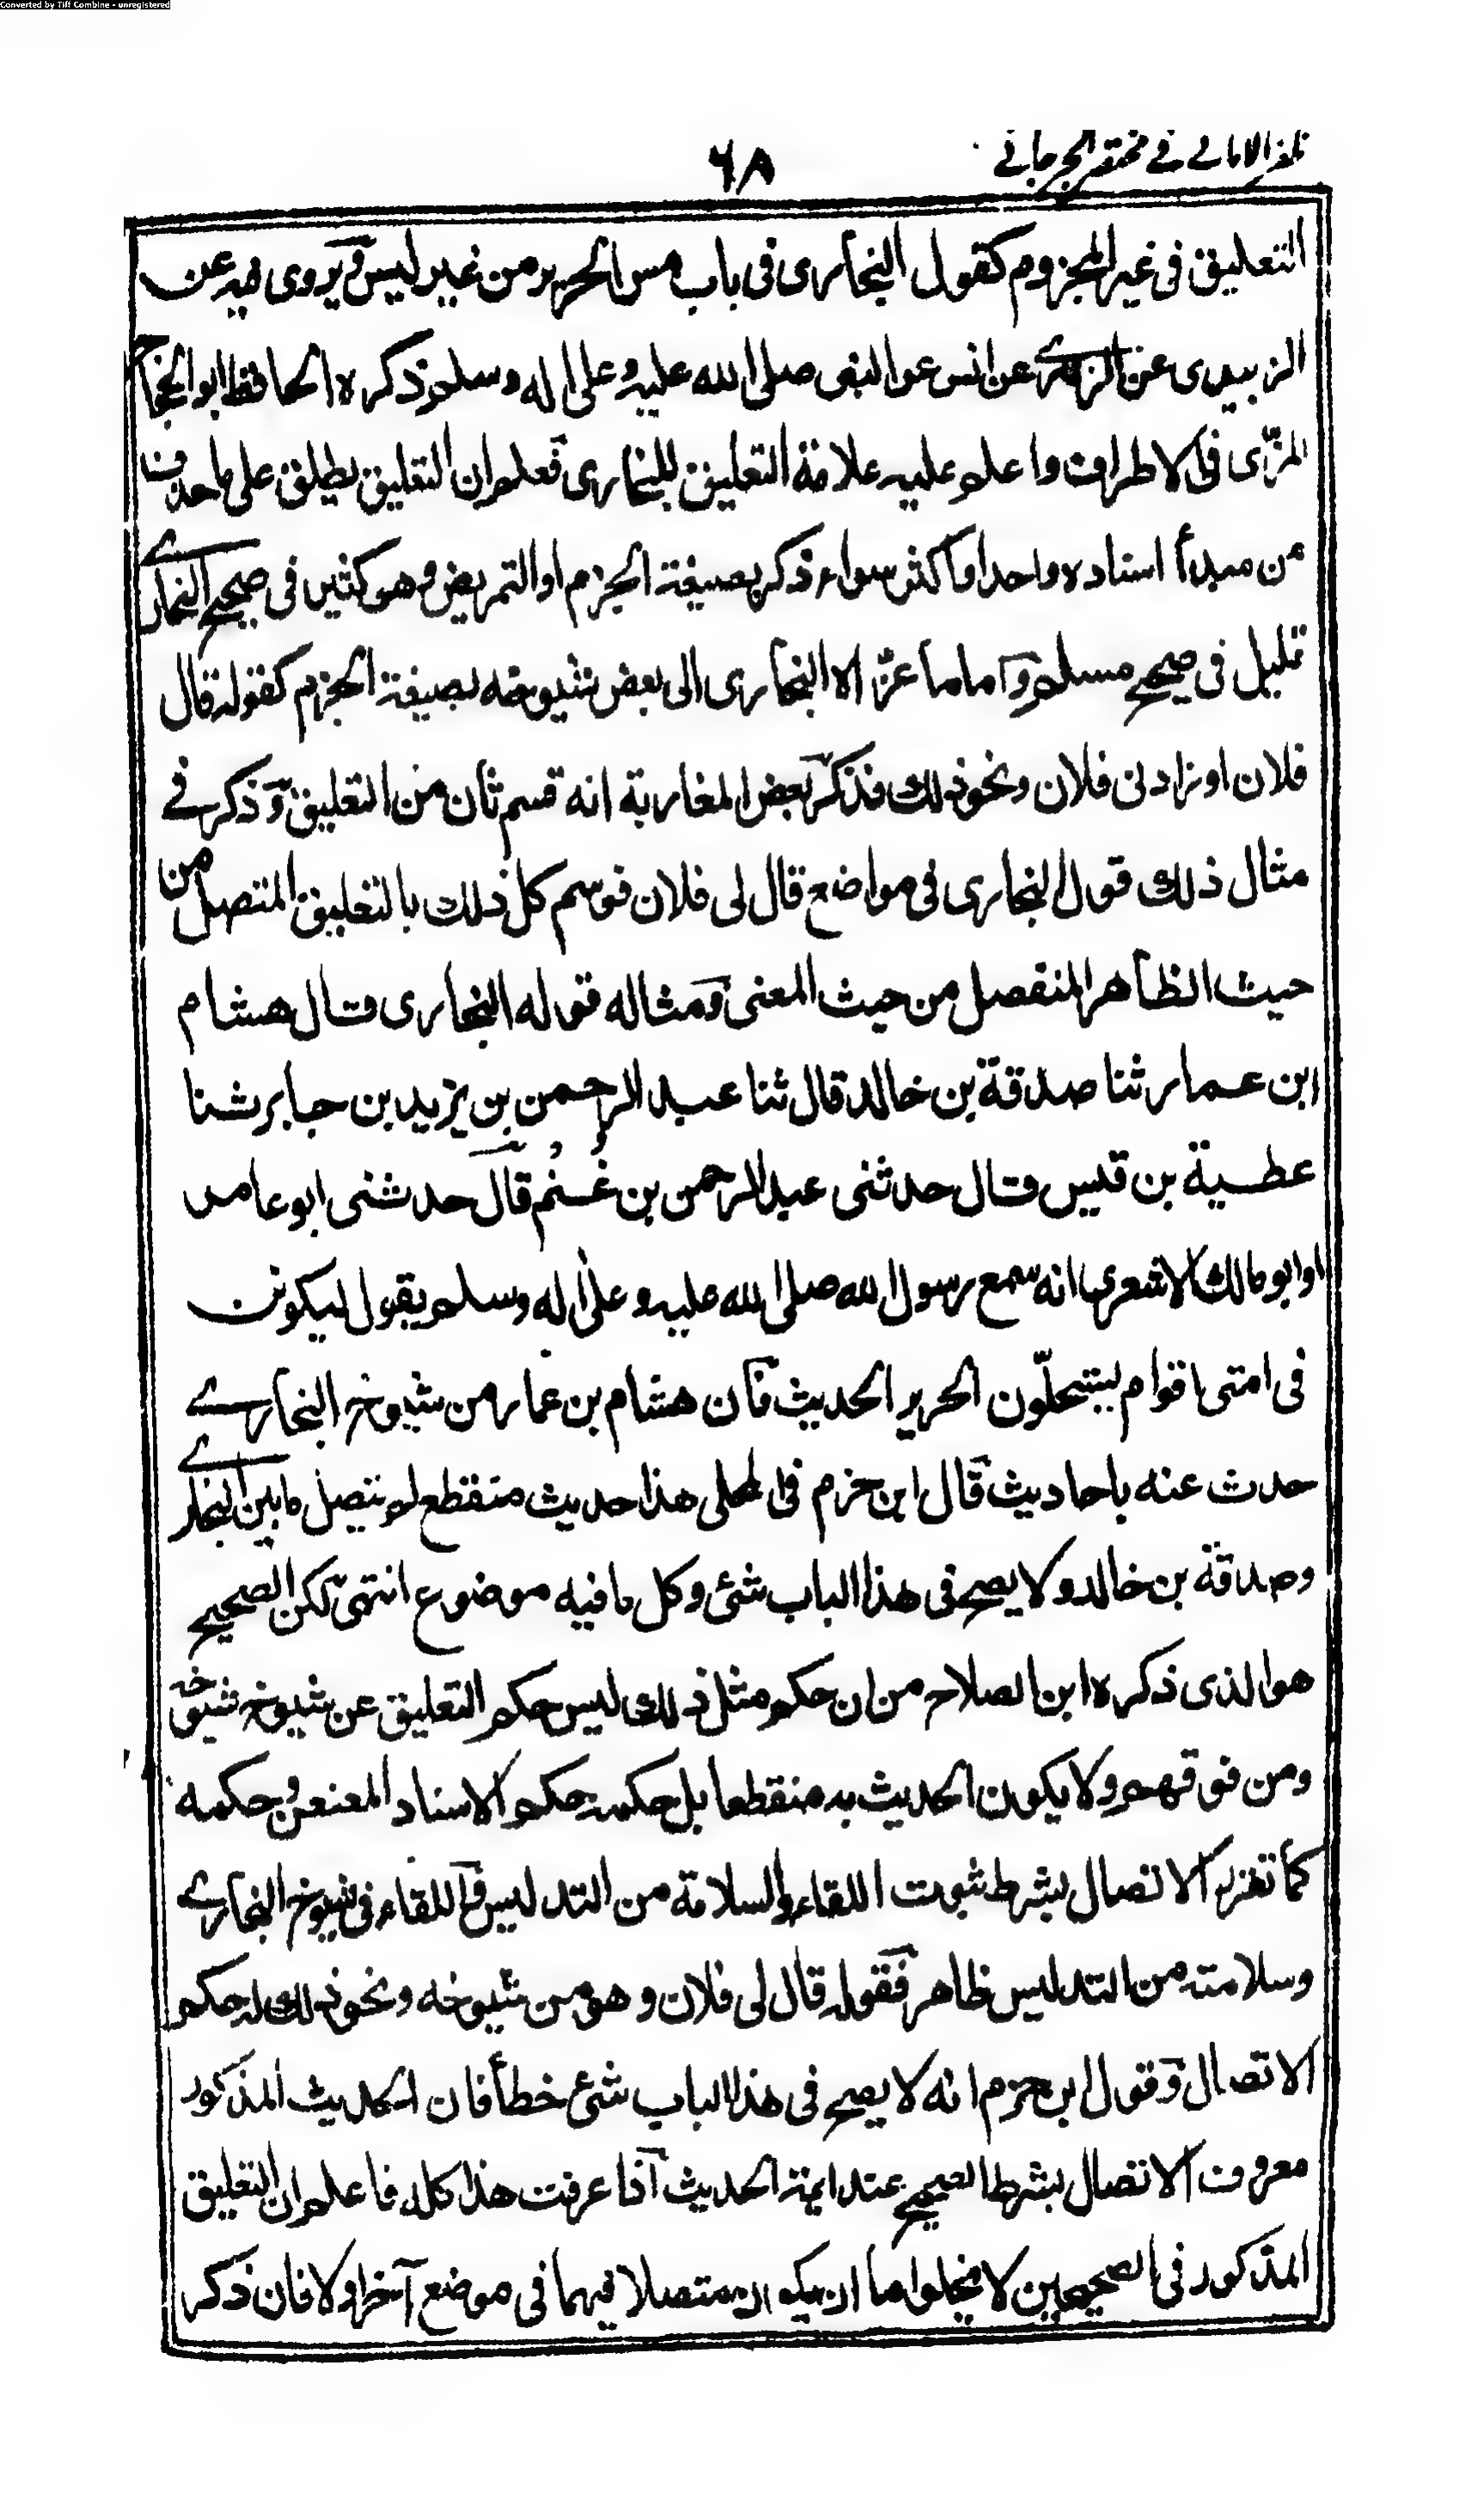 Converted by Tiff Combine - unregistered
ظفر الامانى فے مختصر الجرجانے
٦٨
التعليق فى غير المجزوم كقول البخارى فى باب مس الحرير من غير ليس ويروى فيه عن
الزبيدى عن الزهرى عن انس عن النبى صلى الله عليه وعلى اله وسلم ذكره الحافظ ابو الحجاج
المزّى فى الاطراف واعلم عليه علامة التعليق للبخارى فعلم ان التعليق يطلق على ما حذف
من مبدأ اسناده واحد او اكثر سواء ذكر بصيغة الجزم او التمريض وهو كثير فى صحيح البخارے
قليل فى صحيح مسلم واما ما عزاه البخارى الى بعض شيوخه بصيغة الجزم كقوله قال
فلان او زاد لى فلان ونحو ذلك فذكر بعض المغاربة انه قسم ثان من التعليق وذكر فے
مثال ذلك قول البخارى فى مواضع قال لى فلان فوسم كل ذلك بالتعليق المتصل من
حيث الظاهر المنفصل من حيث المعنى ومثاله قوله البخارى قال هشام
ابن عمار ثنا صدقة بن خالد قال ثنا عبد الرحمن بن يزيد بن جابر ثنا
عطية بن قيس قال حدثنى عبد الرحمن بن غُنْم قال حدثنى ابو عامر
او ابو مالك الاشعرى انه سمع رسول الله صلى الله عليه وعلى اله وسلم يقول ليكونن
فى امتى اقوام يستحلّون الحرير الحديث فان هشام بن عمار من شيوخ البخارے
حدث عنه باحاديث قال ابن حزم فى المحلى هذا حديث منقطع لم يتصل ما بين البخارے
وصدقة بن خالد ولا يصح فى هذا الباب شئ وكل ما فيه موضوع انتهى لكن الصحيح
هو الذى ذكره ابن الصلاح من ان حكم مثل ذلك ليس حكم التعليق عن شيوخ شيوخه
ومن فوقهم ولا يكون الحديث به منقطعا بل حكمه حكم الاسناد المعنعن وحكمه
كما تقرر الاتصال بشرط ثبوت اللقاء والسلامة من التدليس فاللقاء فى شيوخ البخارے
وسلامته من التدليس ظاهر فقوله قال لى فلان وهو من شيوخه ونحو ذلك له حكم
الاتصال وقول ابن حزم انه لا يصح فى هذا الباب شئ خطأ فان الحديث المذكور
معروف الاتصال بشرط الصحيح عند ائمة الحديث اذا عرفت هذا كله فاعلم ان التعليق
المذكور فى الصحيحين لا يخلو اما ان يكون متصلا فيهما فى موضع آخر اولا فان ذكر